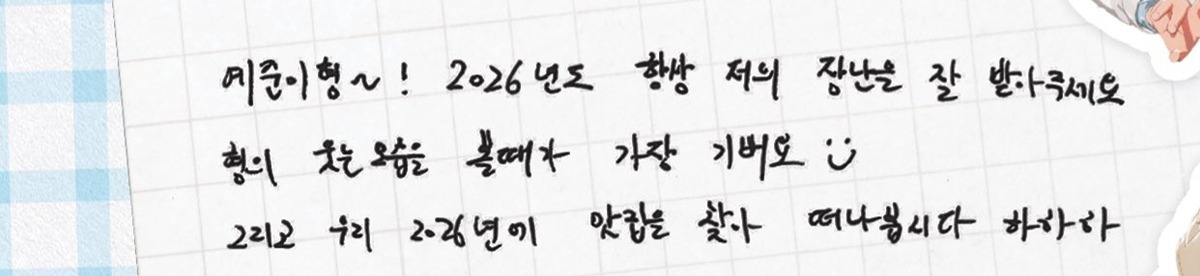 예준이형~! 2026년도 항상 저의 장난을 잘 받아주세요
형의 웃는모습을 볼때가 가장 기버요 :)
그리고 우리 2026년에 맛집을 찾아 떠나봅시다 하하하